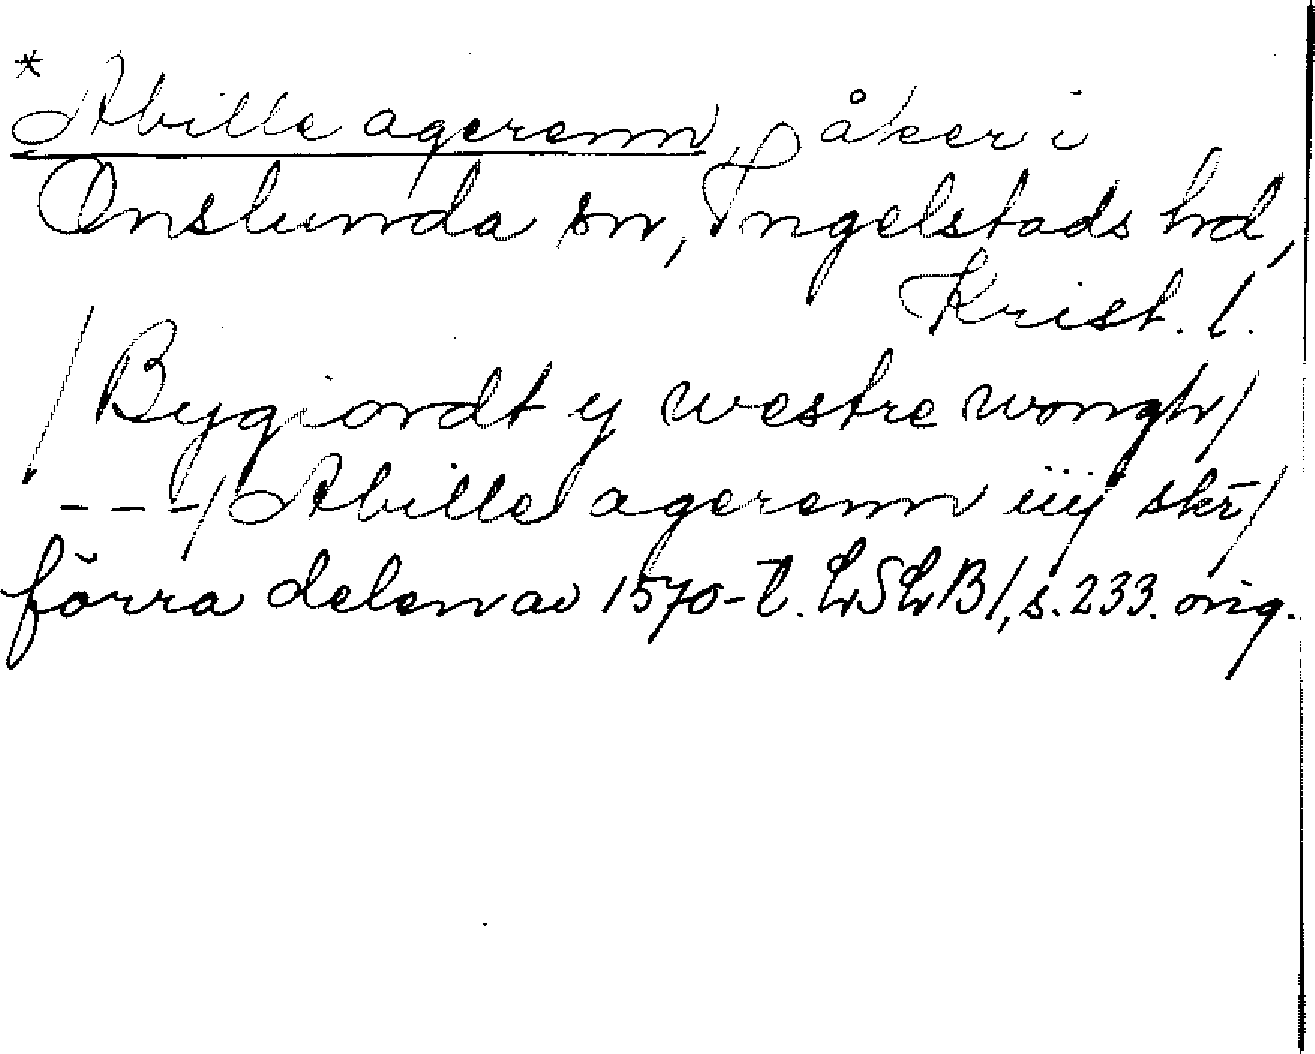 * Abille agerenn, åker i
Onslunda sn, Ingelstads hd,
Krist. l.
/ Bygiordt y westre wongh/
---/ Abille agerenn iiij skr/
förra delen av 1570-t. LSLB1, s. 233. orig.